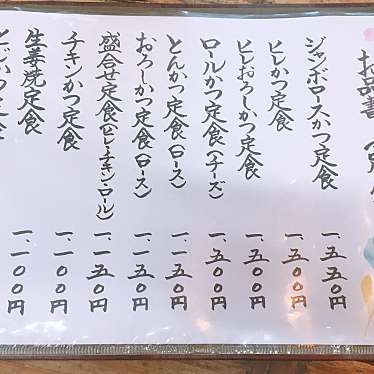 お品書
ジャンボロースかつ定食 一、五五〇円
ヒレかつ定食 一、五〇〇円
ヒレおろしかつ定食 一、五〇〇円
ロールかつ定食(チーズ) 一、五〇〇円
とんかつ定食(ロース) 一、一五〇円
おろしかつ定食(ロース) 一、一五〇円
盛合せ定食(ヒレ・チキン・ロール) 一、一五〇円
チキンかつ定食 一、一〇〇円
生姜焼定食 一、一〇〇円